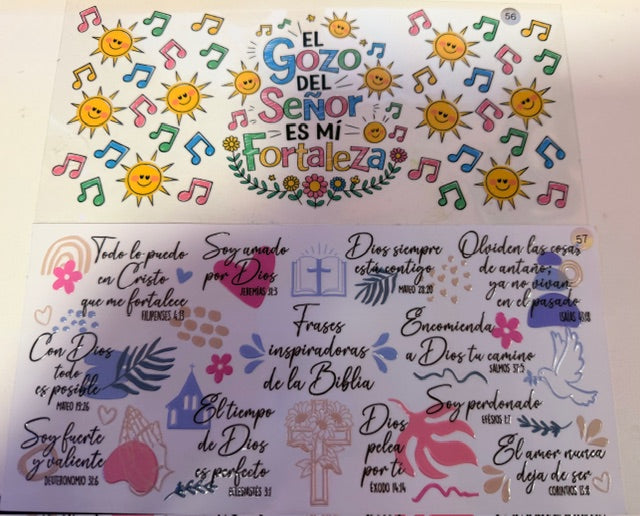 56
EL
Gozo
DEL
SEÑOR
ES MÍ
Fortaleza
57
Todo lo puedo
en Cristo
que me fortalece
FILIPENSES 4:13
Soy amado
por Dios
JEREMÍAS 31:3
Dios siempre
está contigo
MATEO 28:20
Olviden las cosas
de antaño;
ya no vivan
en el pasado
ISAÍAS 43:18
Con Dios
todo
es posible
MATEO 19:26
Frases
inspiradoras
de la Biblia
Encomienda
a Dios tu camino
SALMOS 37:5
Soy fuerte
y valiente
DEUTERONOMIO 31:6
El tiempo
de Dios
es perfecto
ECLESIASTÉS 3:1
Dios
pelea
por ti
ÉXODO 14:14
Soy perdonado
EFESIOS 1:7
El amor nunca
deja de ser
CORINTIOS 13:8